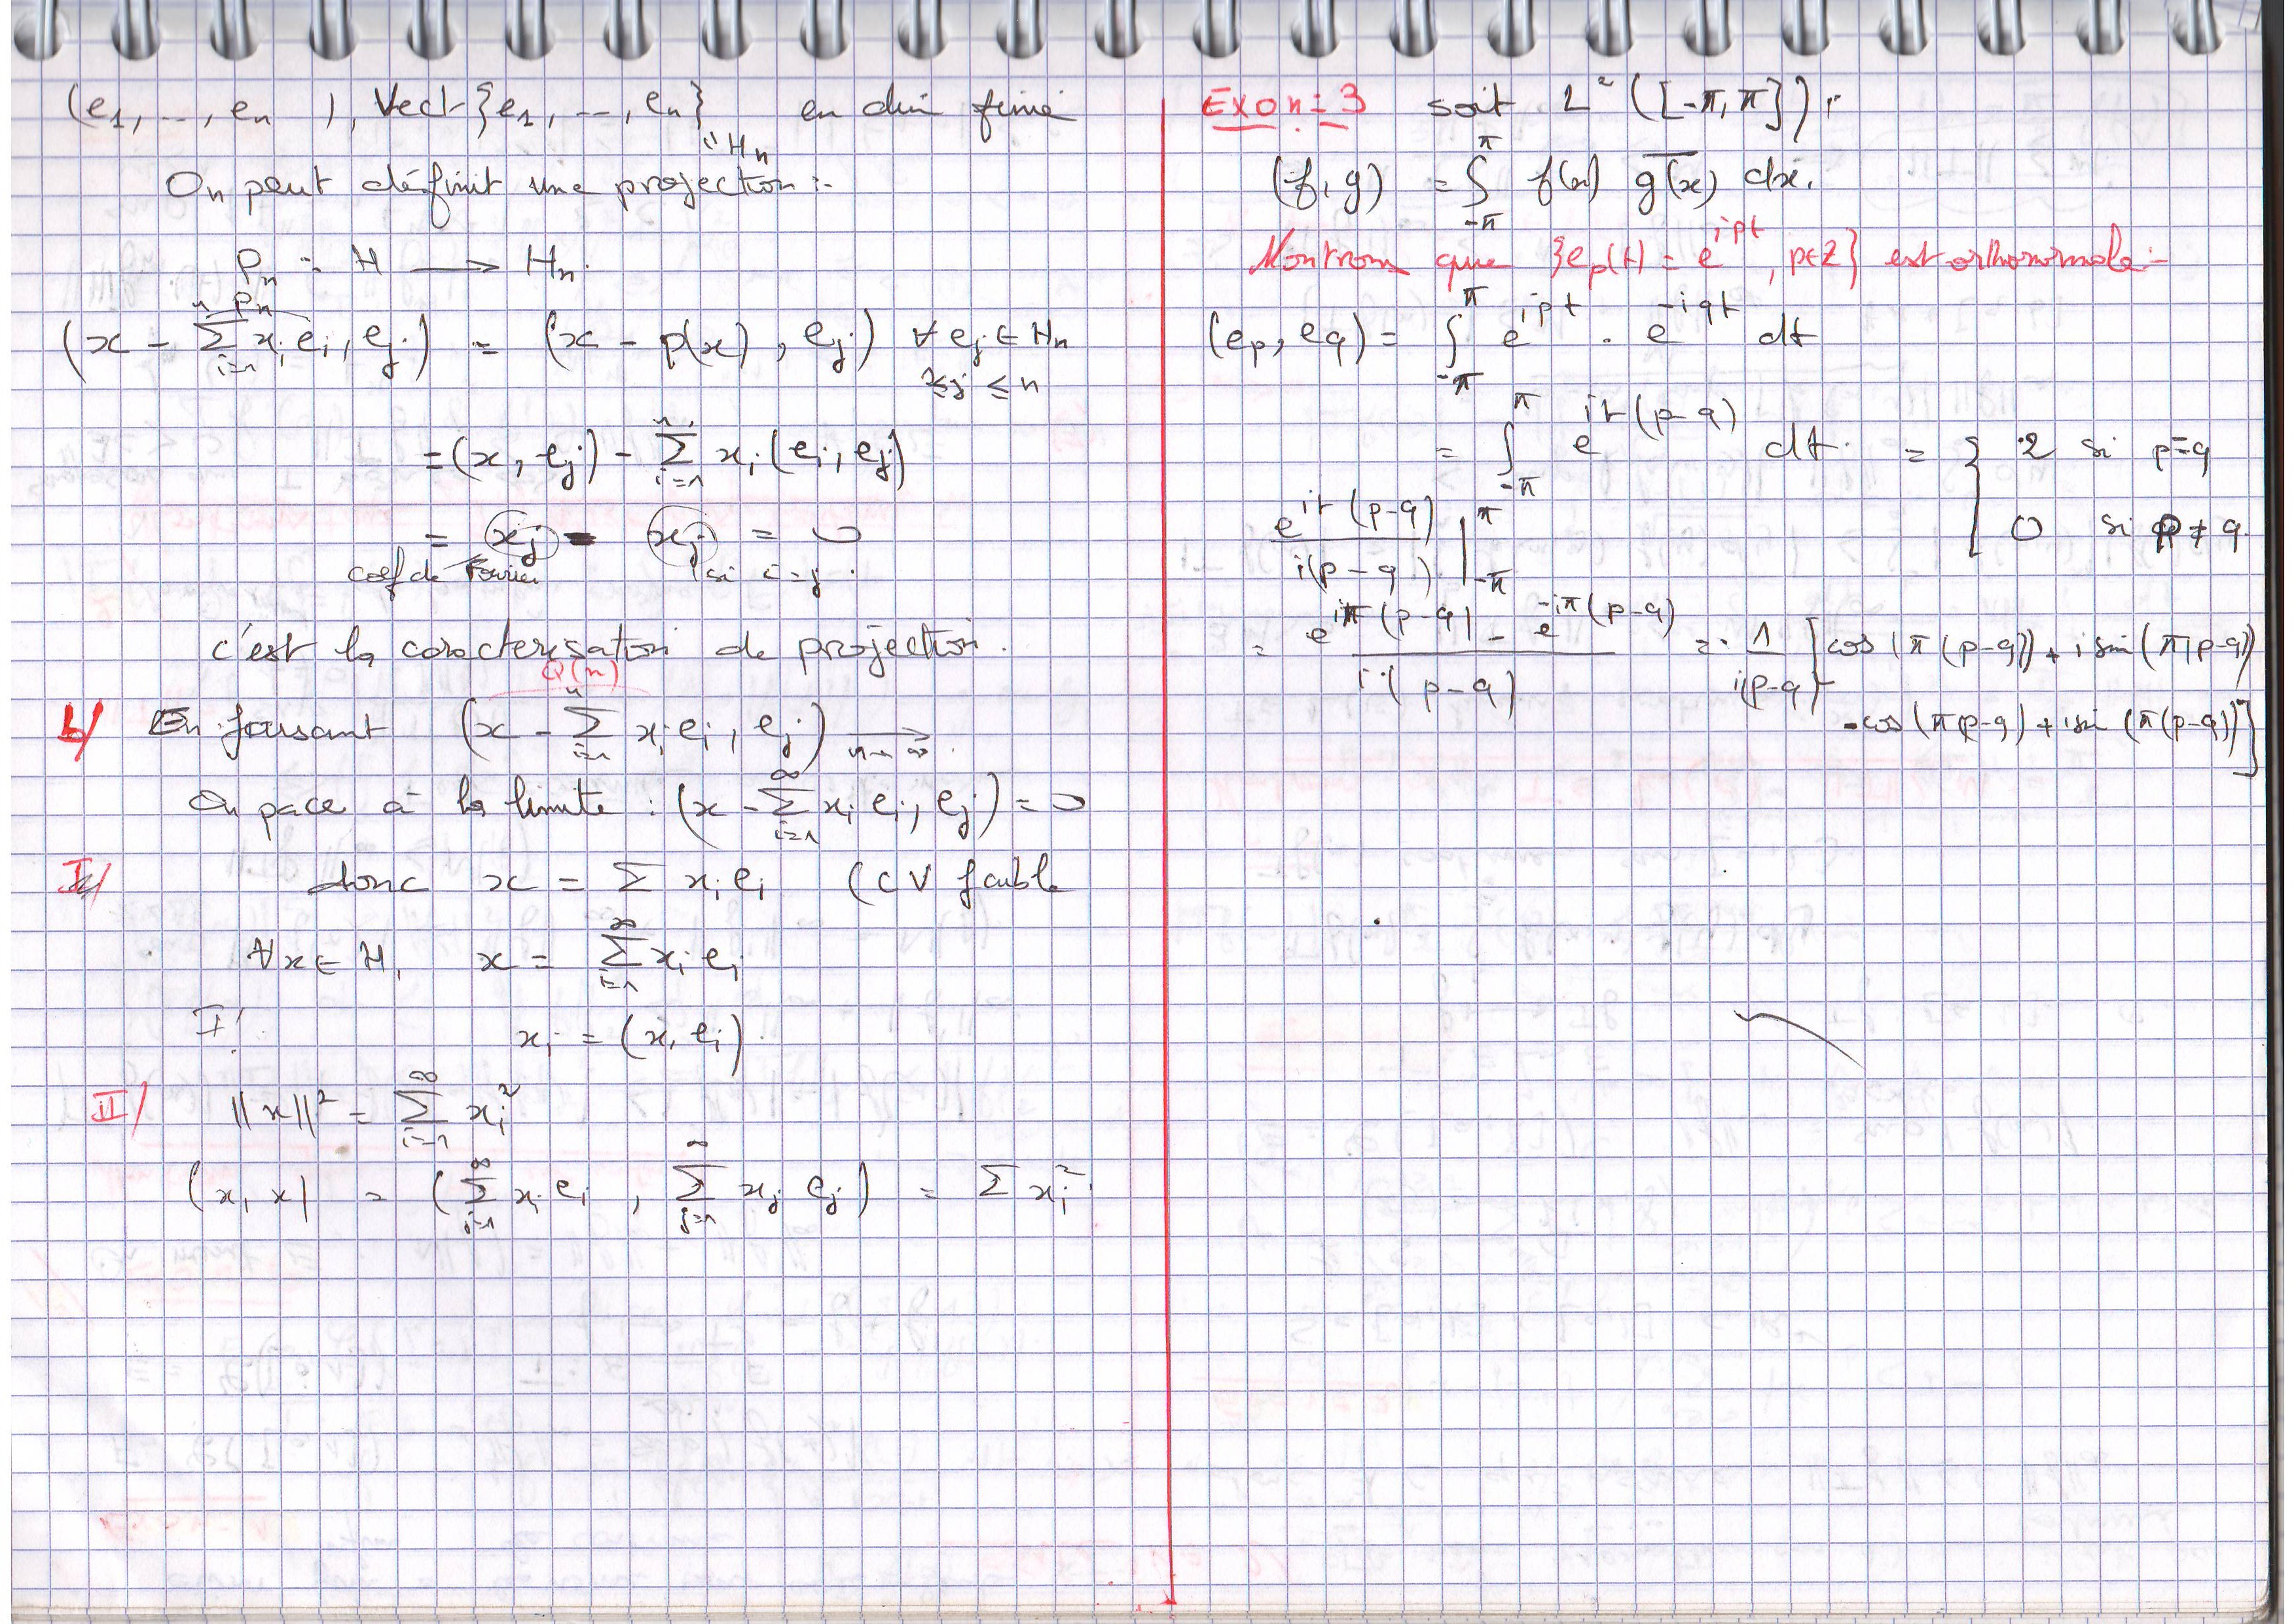 (e₁, ..., eₙ), Vect {e₁, ..., eₙ} en dim finie
" Hₙ
On peut définit une projection :-
Pₙ : H ⟶ Hₙ.
Pₙ
(x - Σᵢ₌₁ⁿ xᵢ eᵢ, eⱼ) = (x - p(x), eⱼ) ∀ eⱼ ∈ Hₙ
1 ≤ j ≤ n
= (x, eⱼ) - Σᵢ₌₁ⁿ xᵢ (eᵢ, eⱼ)
= xⱼ - xⱼ = 0
coef de Fourier si i = j.
c'est la caracterisation de projection.
Q(n)
b/ En faisant (x - Σᵢ₌₁ⁿ xᵢ eᵢ, eⱼ) ⟶ n→∞
On pace à la limite : (x - Σᵢ₌₁^∞ xᵢ eᵢ, eⱼ) = 0
I/ donc x = Σ xᵢ eᵢ (CV faible
∀x ∈ H, x = Σᵢ₌₁^∞ xᵢ eᵢ
I! xᵢ = (x, eᵢ).
II/ ||x||² = Σᵢ₌₁^∞ xᵢ²
(x, x) = (Σᵢ₌₁^∞ xᵢ eᵢ, Σⱼ₌₁^∞ xⱼ eⱼ) = Σ xᵢ²
Exo n=3 soit L² ([-π, π]) :
(f, g) = ∫_{-π}^{π} f(x) \overline{g(x)} dx.
Montrons que {eₚ(t) = e^{ipt}, p∈Z} est orthonormale :-
(eₚ, e_q) = ∫_{-π}^{π} e^{ipt} . e^{-iqt} dt
= ∫_{-π}^{π} e^{it(p-q)} dt. = { 2 si p=q
0 si p ≠ q.
e^{it(p-q)} / i(p-q) |_{-π}^{π}
= (e^{iπ(p-q)} - e^{-iπ(p-q)}) / i(p-q) = 1/i(p-q) [cos(π(p-q)) + i sin(π(p-q))
- cos(π(p-q) + i sin(π(p-q))]